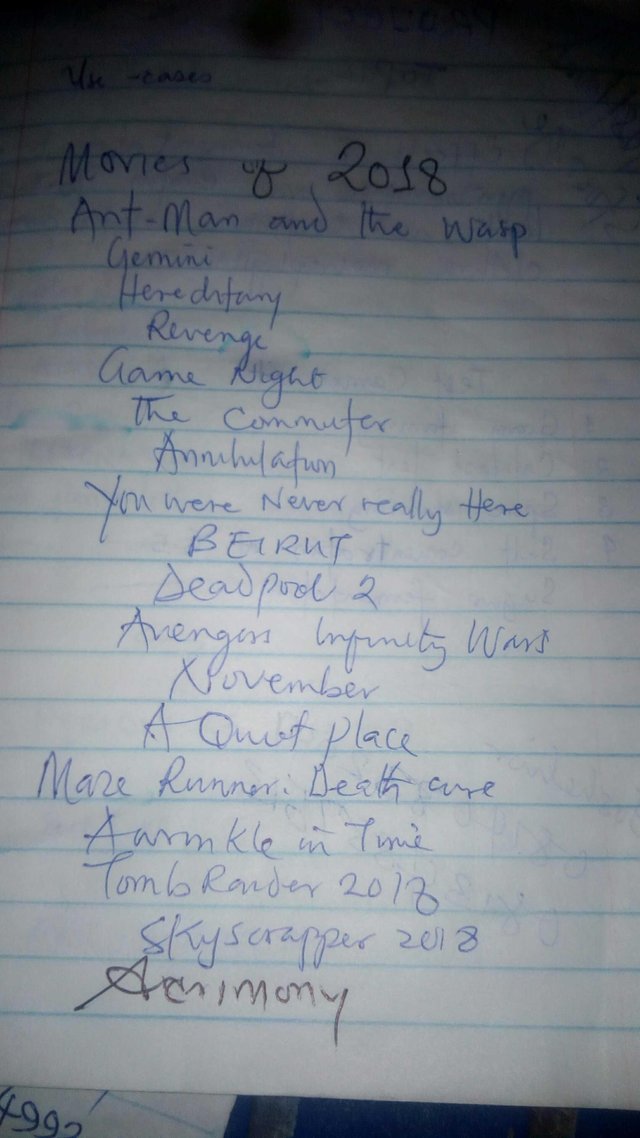 Use-cases
Movies of 2018
Ant-Man and the Wasp
Gemini
Hereditary
Revenge
Game Night
The Commuter
Annihilation
You were Never really Here
BEIRUT
Deadpool 2
Avengers Infinity Wars
November
A Quiet place
Maze Runner: Death cure
A wrinkle in Time
Tomb Raider 2018
Skyscrapper 2018
Acrimony
4992